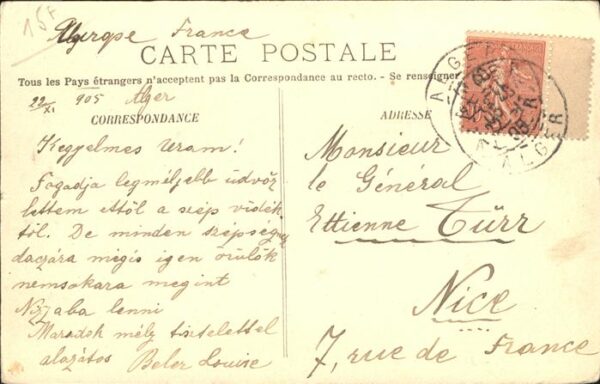 15F
Europe France
CARTE POSTALE
Tous les Pays étrangers n'acceptent pas la Correspondance au recto. - Se renseigner
22/XI 905 Alger
CORRESPONDANCE
ADRESSE
ALGER
ALGER
Kegyelmes Uram!
Fogadja legmélyebb üdvöz
lettem ettől a szép vidék
től. De minden szépség
daczára mégis igen örülök
nemsokara megint
lenni
Maradok mély tisztelettel
alazátos Beler Louise
Monsieur
le Général
Ettienne Türr
Nice
7, rue de France